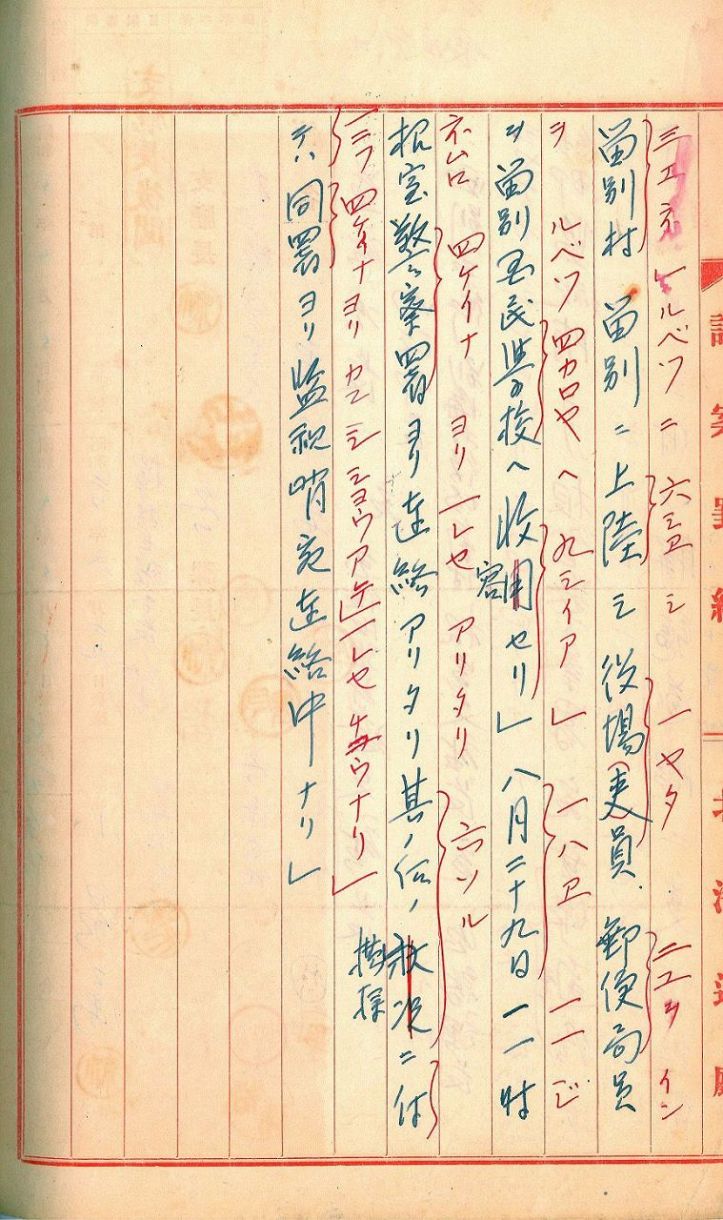 北海道廳
三エネ ルベツ ニ 六ミアシ 一ヤタ ニユヲイン
留別村 留別ニ上陸シ役場吏員、郵便局員
ヲ ルベツ 四カロヤ ヘ 九ミイア 」 一八ア 一一ジ
ヲ留別国民学校ヘ收容セリ」八月二十九日一一時
ネムロ 四ケイナ ヨリ 一レセ アリタリ 六ソル
根室警察署ヨリ連絡アリタリ其ノ後ノ状況ニ付
四ケイナ ヨリ カンシ ショウ アテ 一レセ チウナリ」
テハ同署ヨリ監視哨宛連絡中ナリ」